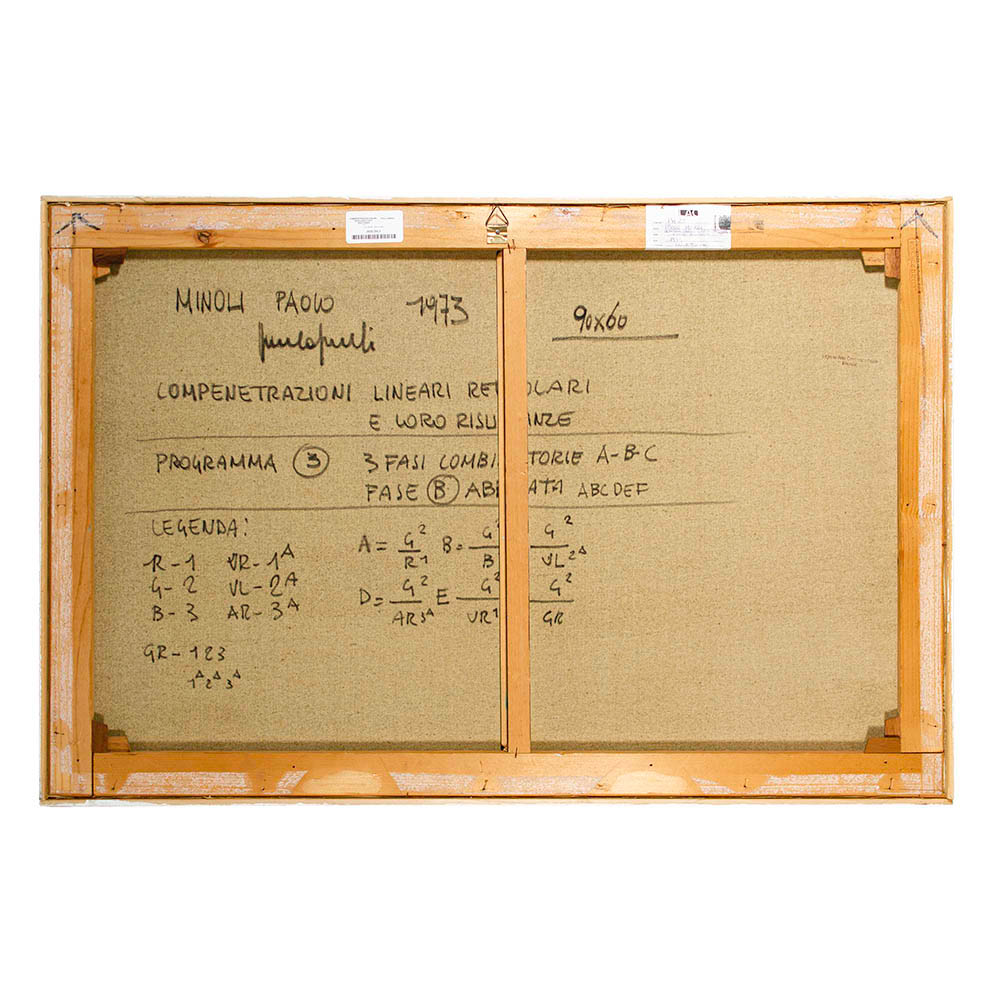 MINOLI PAOLO 1973
90x60
COMPENETRAZIONI LINEARI RE OLARI
E LORO RISU ANZE
PROGRAMMA 3 3 FASI COMBI TORIE A-B-C
FASE B AB ATA ABCDEF
LEGENDA:
R-1 VR-1A
G-2 VL-2A
B-3 AR-3A
GR-123
1A2A3A
A= G2/R1 B= G2/B G2/VL2A
D= G2/AR3A E G2/VR1 G2/GR